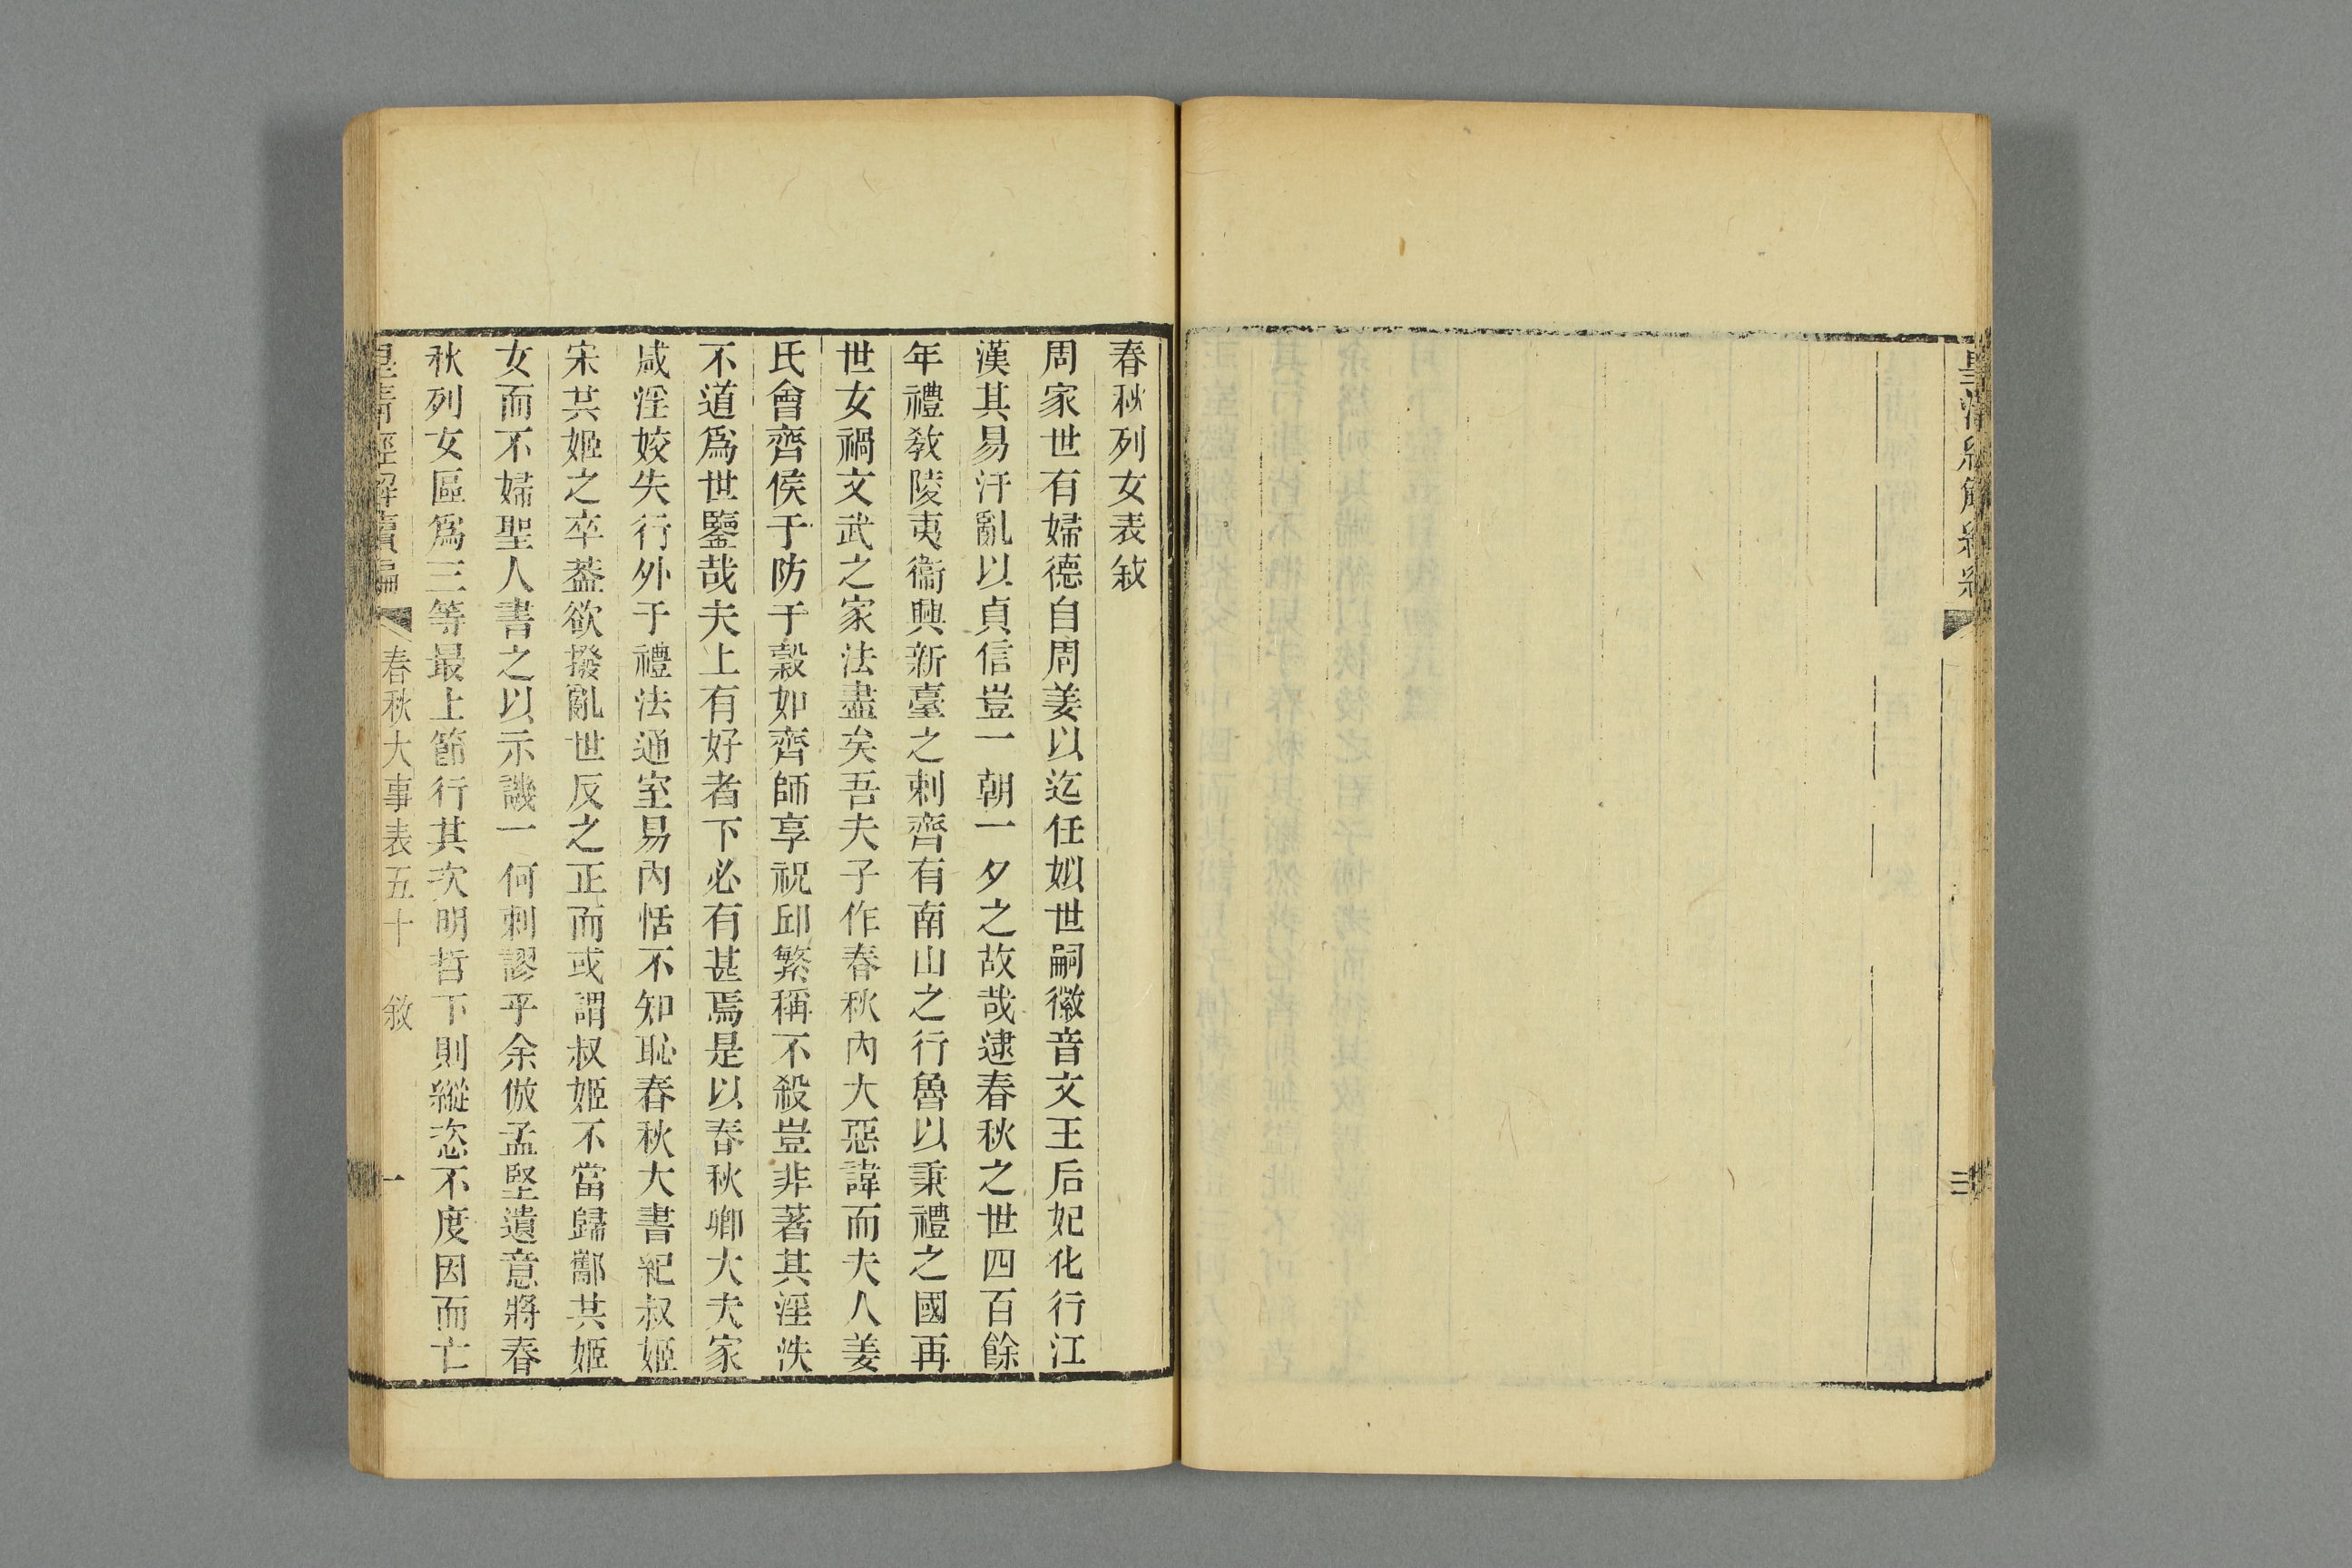 皇清經解續編
三
春秋列女表敘
周家世有婦德自周姜以迄任姒世嗣徽音文王后妃化行江
漢其易汙亂以貞信豈一朝一夕之故哉逮春秋之世四百餘
年禮敎陵夷衞興新臺之刺齊有南山之行魯以秉禮之國再
世女禍文武之家法盡矣吾夫子作春秋內大惡諱而夫人姜
氏會齊侯于防于穀如齊師享祝邱繁稱不殺豈非著其淫泆
不道爲世鑒哉夫上有好者下必有甚焉是以春秋卿大夫家
咸淫姣失行外于禮法通室易內恬不知恥春秋大書紀叔姬
宋共姬之卒葢欲撥亂世反之正而或謂叔姬不當歸酅共姬
女而不婦聖人書之以示譏一何剌謬乎余倣孟堅遺意將春
秋列女區爲三等最上節行其次明哲下則縱恣不度因而亡
皇清經解續編 春秋大事表五十 敘 一